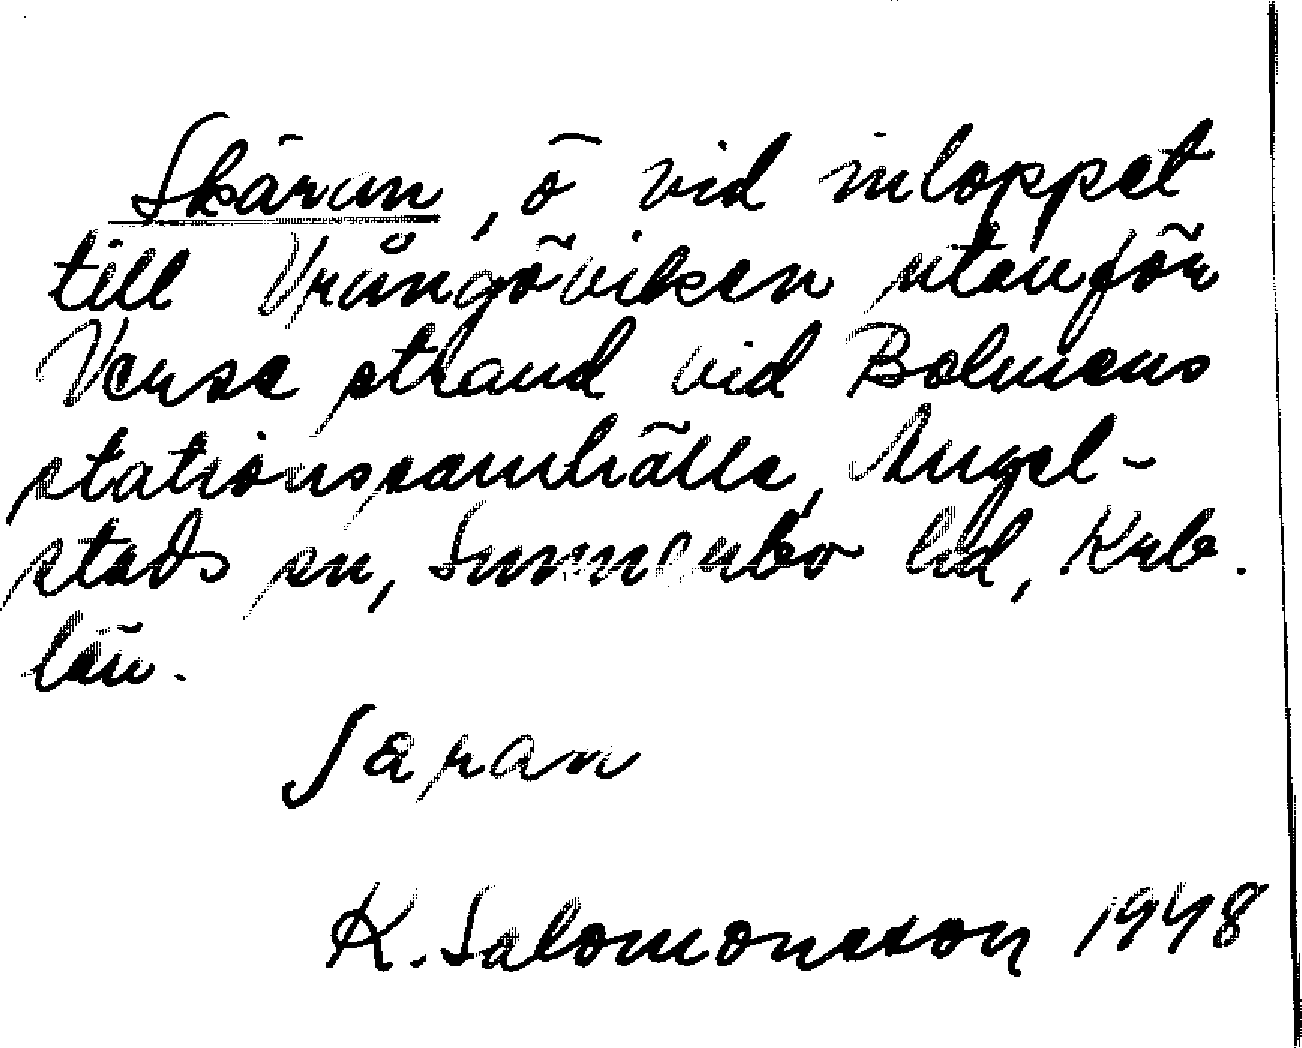 Skäran, ö vid inloppet
till Vrångöviken utanför
Verse strand vid Bolmens
stationssamhälle, Angel-
stads sn, Sunnerbo hd, Krb.
län.
Saran
K. Salomonsson 1948